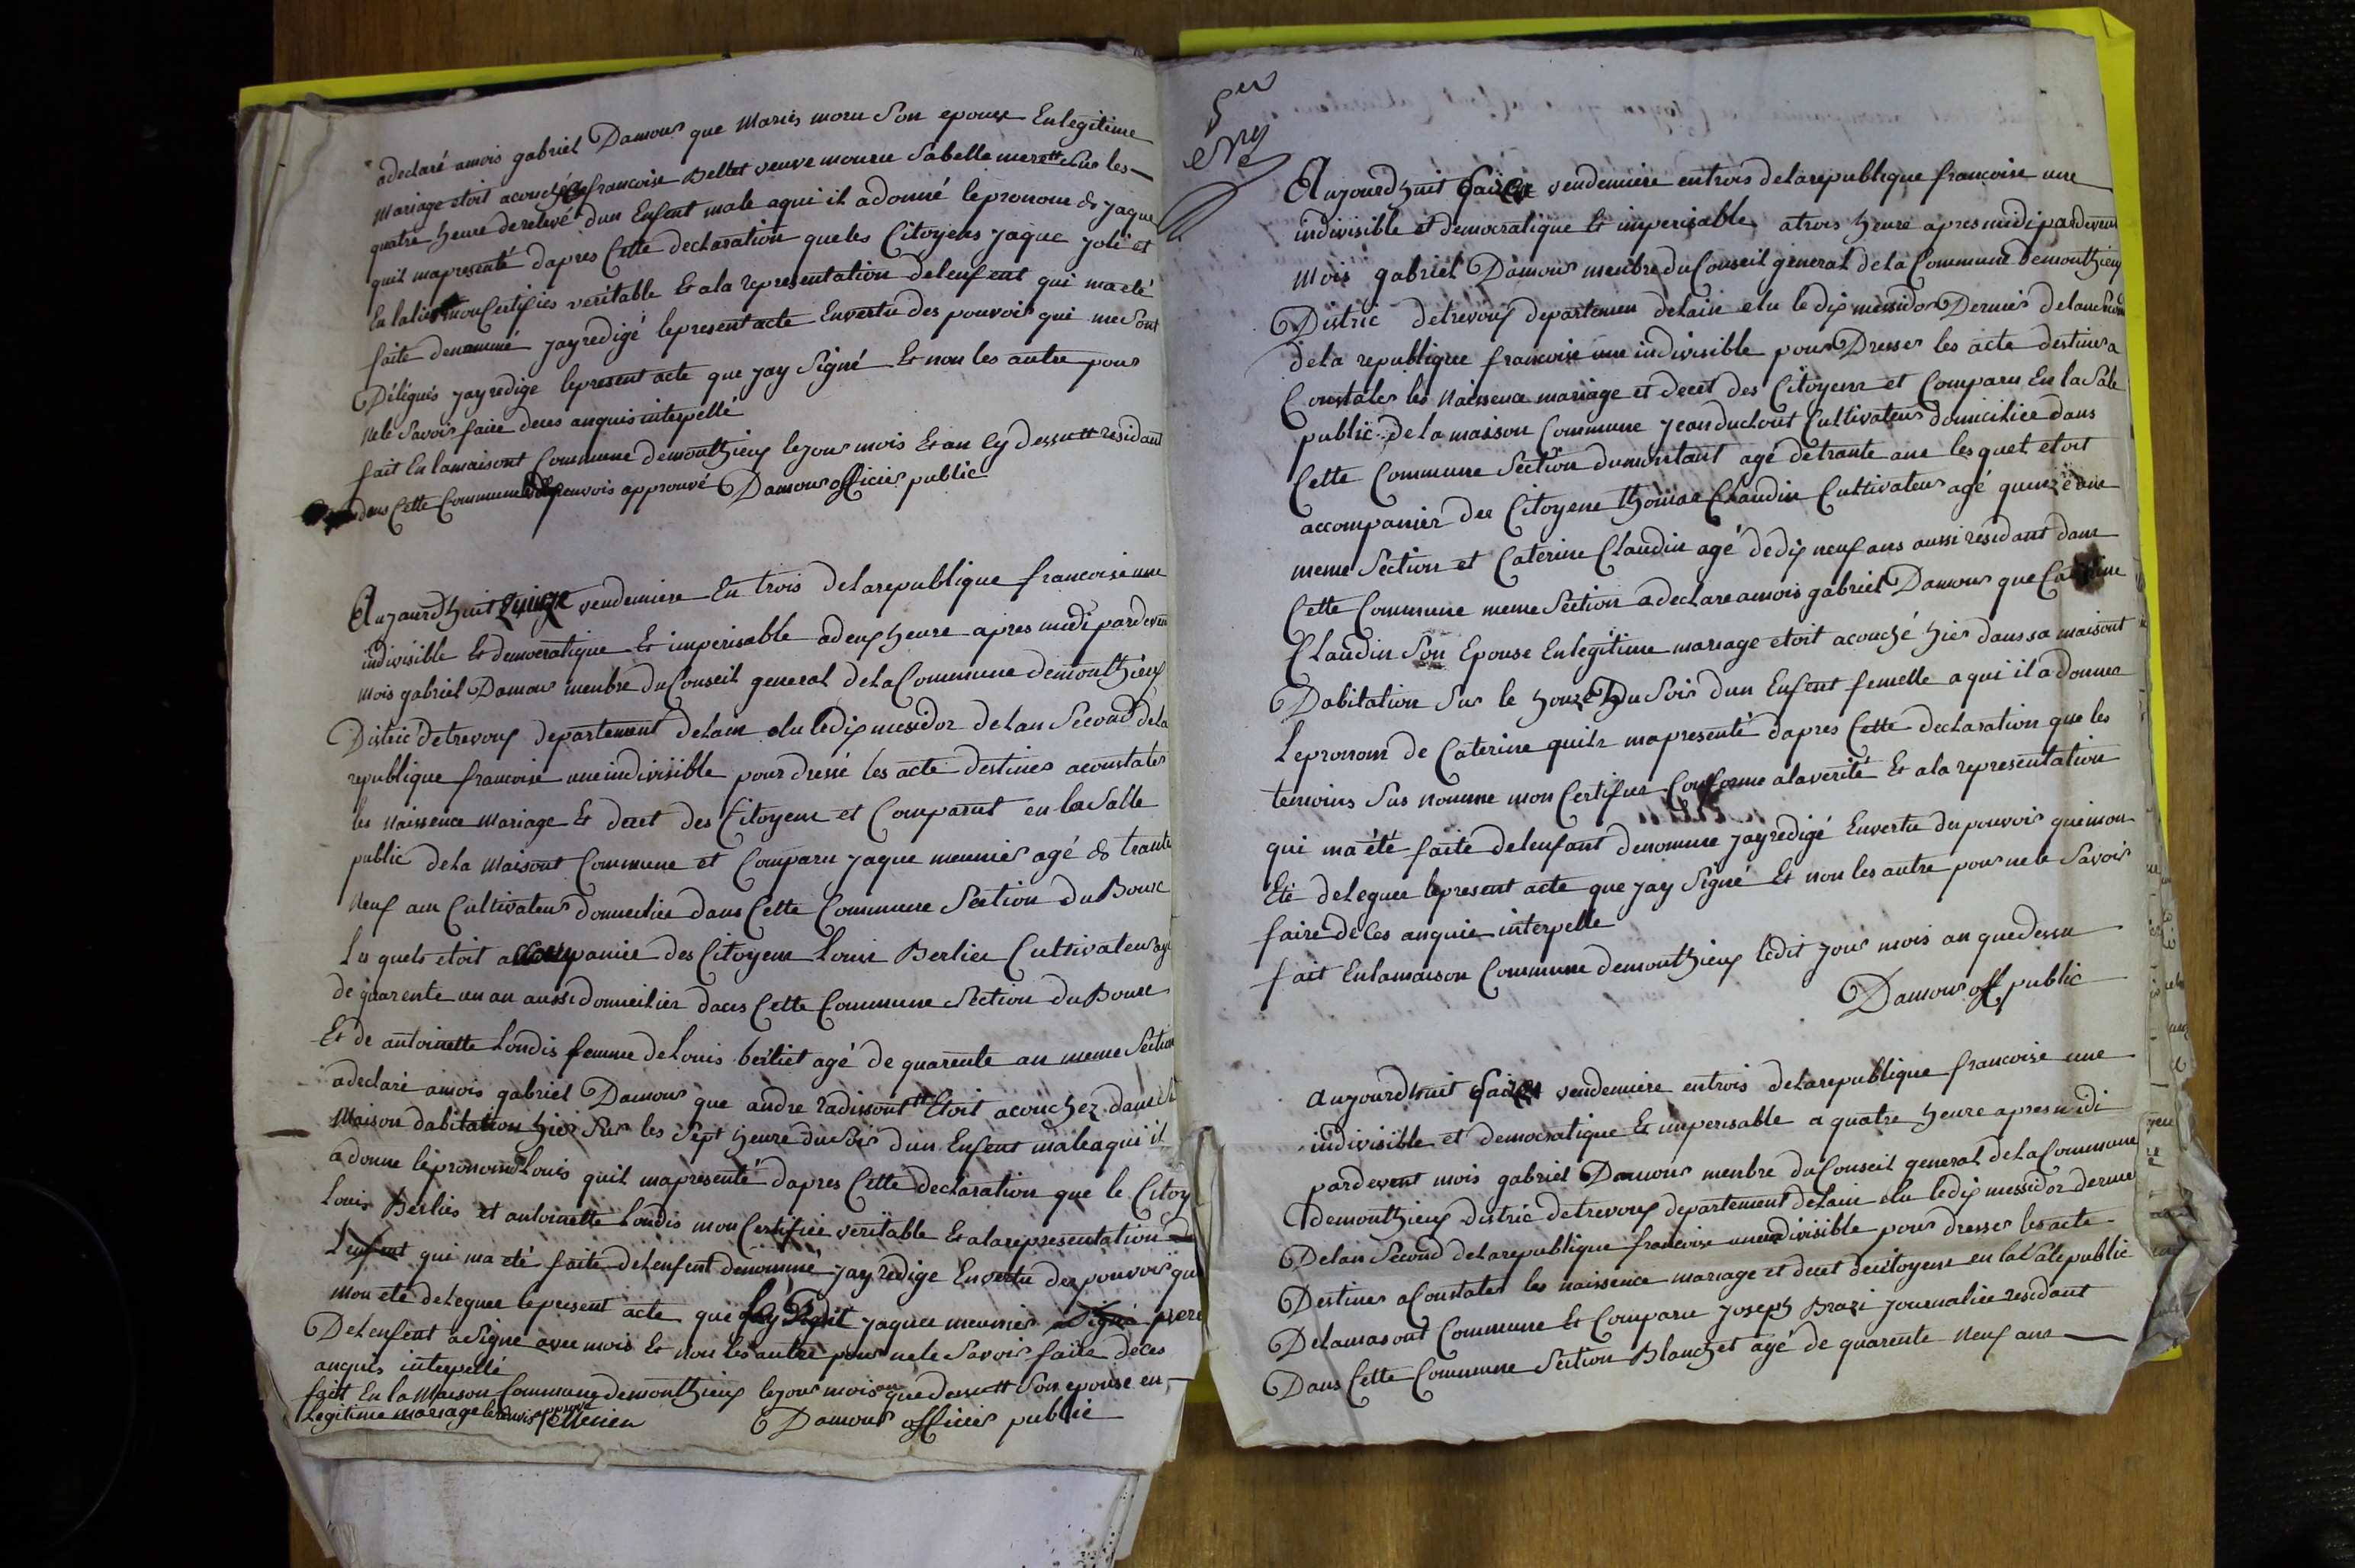 adeclaré amois gabriel Damour que Mariés moru Son epouse Enlegitime
Mariage etoit acouché francoise Bellet veuve mourue Sabelle mere # Sur les
quatre heure derelevé dun Enfent male aqui il adonné lepronom de jaque
quil mapresenté dapres Cette declaration queles Citoyens jaque joli et
En moncertifies veritable Et ala representation delenfent qui maeté
faite denommé jayredigé lepresent acte Envertu des pouvoir qui mesont
Délégués jayredige lepresent acte que jay Signé Et non les autre pour
nele Savoir faire deus anquis interpellé
fait En lamaisont Commune demonthieux lejour mois Et an cy dessu # residant
dans Cette Commune renvois approuvé Damour officier public
Aujourdhuit quinze vendemiere En trois delarepublique francoise une
indivisible Et democratique Et imperisable adeux heure apres midi pardevent
mois gabriel Damour menbre du Conseil general dela Commune demonthieux
Distric detrevoux departement delain elu ledix mesidor delan Second dela
republique francoise une indivisible pour dressé les acte destines aconstater
les Naissence Mariage Et decet des Citoyene et Comparut en la Salle
public dela Maisont Commune et Comparu jaque meunier agé de trante
Neuf ans Cultivateur domeeilies dans Cette Commune Section du Boure
Lesquels etoit accompanie des Citoyene Louis Berlier Cultivateur agé
de quarente un an aussi domeilier dans Cette Commune Section du Boure
Et de antoinette Londis femme deLouis berliet agé de quarente an meme Section
adeclaré amois gabriel Damour que andre radissont # Etoit acouchez dans sa
Maison dabitation hier Sur les Sept heure du Soir dun Enfent male aqui il
adonne lepronom Louis quil mapresenté dapres Cette declaration que le Citoy
Louis Berlies et antoinette Londis mon Certifie veritable Et alarepresentation de
Lenfent qui ma eté faite delenfent denommé jay redige Envertu des pouvoir qui
mon ete deleguee lepresent acte que jaque meunier a Signé pere
Delenfent asigne avec mois Et non les autre pour nele Savoir faire deces
anquis interpellé
fait En la Maison Commune demonthieux lejour mois an que dessu # Son epouse en
Legitime mariage lerenvois approuvé Meunien Damour officier public
5eu
eNg
Aujourdhuit Saize vendemiere entrois delarepublique francoise une
indivisible et democratique Et imperisable atrois heure apres midi pardevent
Mois gabriel Damour menbre du Conseil general dela Commune demonthieux
Distric detrevoux departemen delain elu le dix messidor Dernier delansecond
dela republique francoise une indivisible pour Dresser les acte destiner a
Constater les Naissence mariage et decet des Citoyene et Comparu En la Sale
public dela maison Commune jean duclout Cultivateur domicilice dans
Cette Commune Section dumontant agé detrante ans lesquet etoit
accompanier des Citoyene thomas Claudin Cultivateur agé quinze ans
meme Section et Caterine Claudin agé dedix neuf ans aussi residant dans
Cette Commune meme Section adeclare amois gabriel Damour que Caterine
Claudin Son Epouse Enlegitime mariage etoit acouché hier dans sa maisont
Dabitation Sur le honze h Du Soir dun Enfent femelle a qui il a donner
Lepronom de Caterine quila mapresenté dapres Cette declaration que les
temoins Sus nomme mon Certifier Conforme alaverité Et ala representation
qui ma été faite delenfant denomme jayredigé Envertu du pouvoir quimon
Eté deleguee lepresent acte que jay Signé Et non les autre pour nele Savoir
faire deces anquie interpelle
fait Enlamaison Commune demonthieux ledit jour mois an quedessu
Damour off public
Aujourdhuit Saize vendemiere entrois delarepublique francoise une
indivisible et democratique Et imperisable a quatre heure apres midi
pardevent mois gabriel Damour menbre du Conseil general dela Commune
demonthieux distric detrevoux departement delain elu ledix messidor dernier
Delan Second delarepublique francoise uneindivisible pour dresser les acte
Destiner aConstater les naissence mariage et decet decitoyene en la Salepublic
Delamasont Commune Et Comparu joseph Brazi journalier residant
Dans Cette Commune Section Blanchet agé de quarente Neuf ans